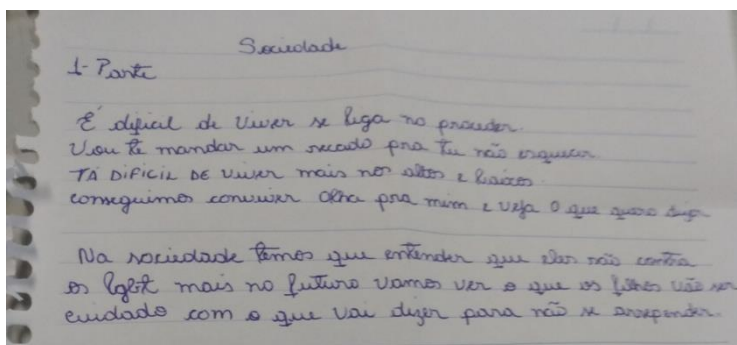 Sociedade
1- Parte
É dificil de viver se liga no proceder.
Vou te mandar um recado pra tu não esquecer
TÁ DIFICIL DE viver mais nos altos e baixos
conseguimos conviver Olha pra mim e veja O que quero dizer
Na sociedade temos que entender que eles não contra
os lgbt mais no futuro vamos ver o que os filhos vão ser
cuidado com o que vai dizer para não se arrepender.